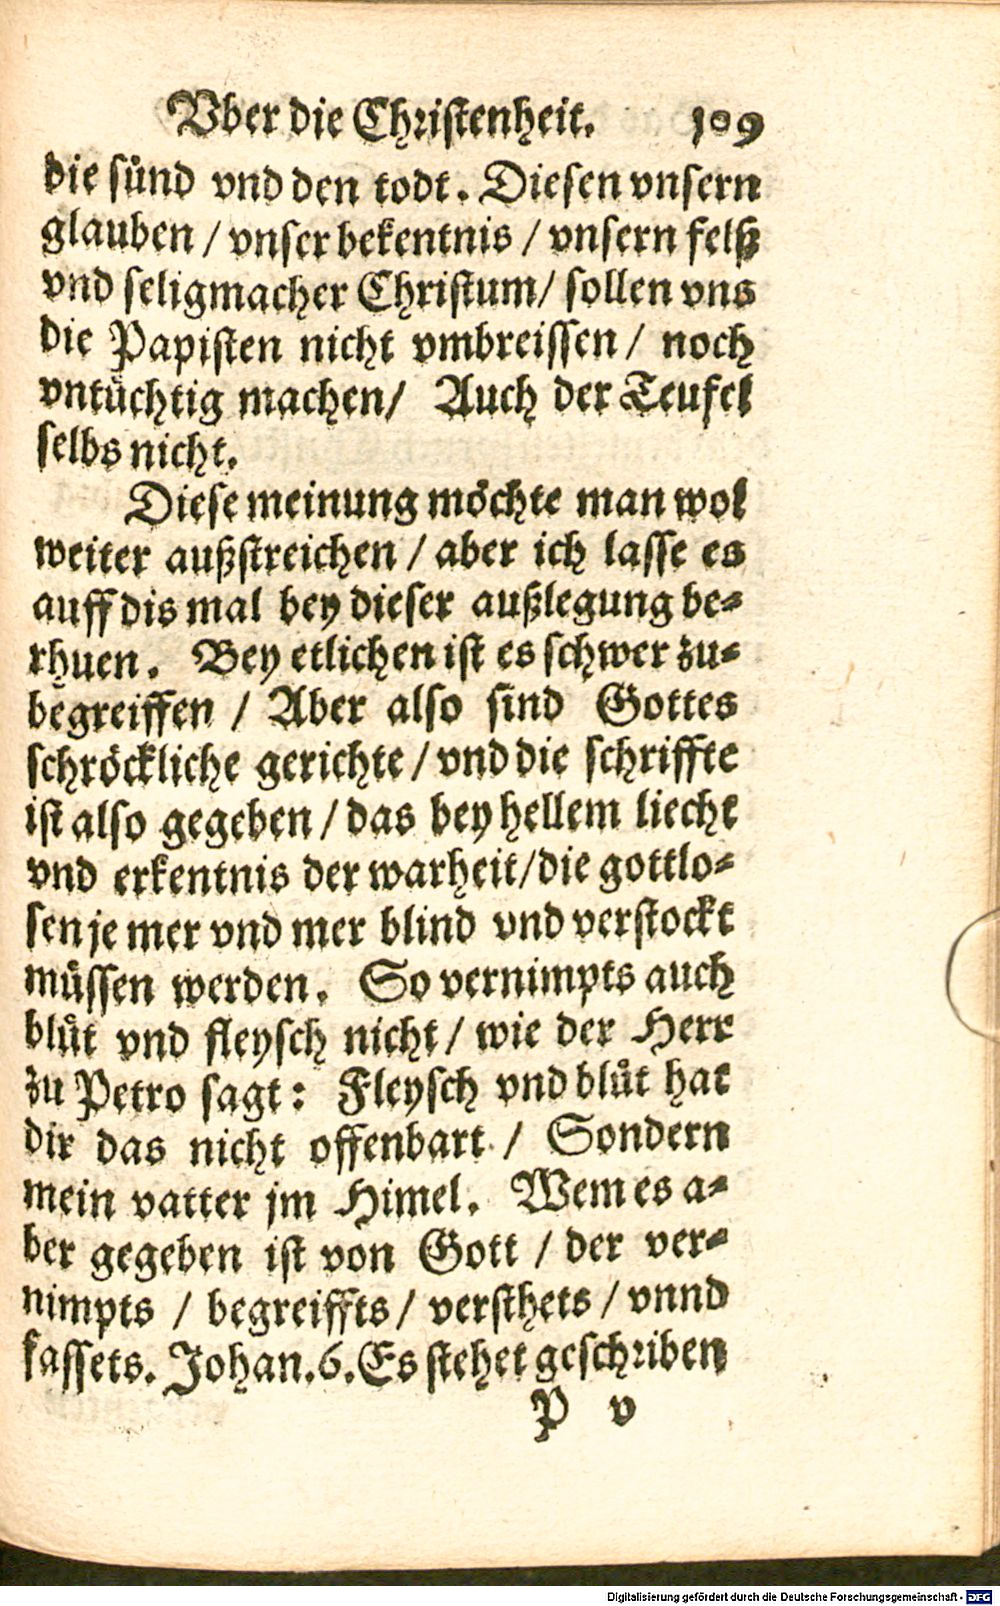 Vber die Christenheit. 109
die sünd vnd den todt. Diesen vnsern
glauben / vnser bekentnis / vnsern felß
vnd seligmacher Christum/ sollen vns
die Papisten nicht vmbreissen / noch
vntüchtig machen/ Auch der Teufel
selbs nicht.
Diese meinung möchte man wol
weiter außstreichen / aber ich lasse es
auff dis mal bey dieser außlegung be-
rhuen. Bey etlichen ist es schwer zu-
begreiffen / Aber also sind Gottes
schröckliche gerichte / vnd die schriffte
ist also gegeben / das bey hellem liecht
vnd erkentnis der warheit/die gottlo-
sen je mer vnd mer blind vnd verstockt
müssen werden. So vernimpts auch
blůt vnd fleysch nicht / wie der Herr
zu Petro sagt: Fleysch vnd blůt hat
dir das nicht offenbart / Sondern
mein vatter jm Himel. Wem es a-
ber gegeben ist von Gott / der ver-
nimpts / begreiffts / versthets / vnnd
fassets. Johan.6. Es stehet geschriben
P v
Digitalisierung gefördert durch die Deutsche Forschungsgemeinschaft - DFG